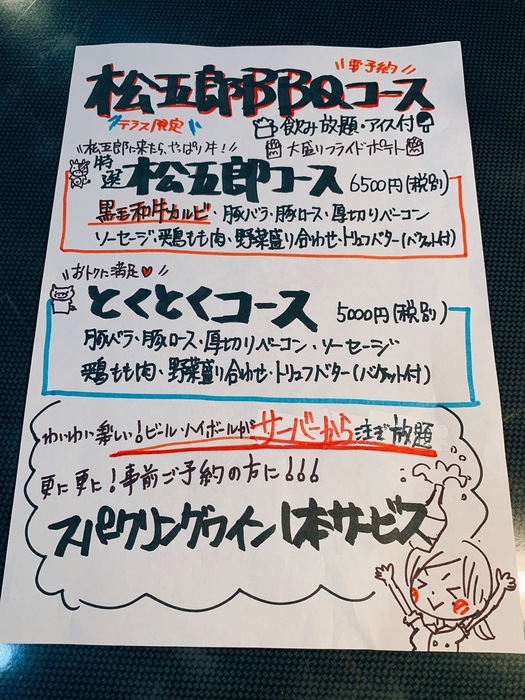 要予約
松五郎BBQコース
テラス限定
飲み放題・アイス付
松五郎に来たら、やっぱり牛!
大盛りフライドポテト
特選 松五郎コース 6500円(税別)
黒毛和牛カルビ・豚バラ・豚ロース・厚切りベーコン
ソーセージ・鶏もも肉・野菜盛り合わせ・トリュフバター(バケット付)
おトクに満足♥
とくとくコース 5000円(税別)
豚バラ・豚ロース・厚切りベーコン・ソーセージ
鶏もも肉・野菜盛り合わせ・トリュフバター(バケット付)
わいわい楽しい!ビール・ハイボールがサーバーから注ぎ放題
更に更に!事前ご予約の方に!!!
スパークリングワイン1本サービス